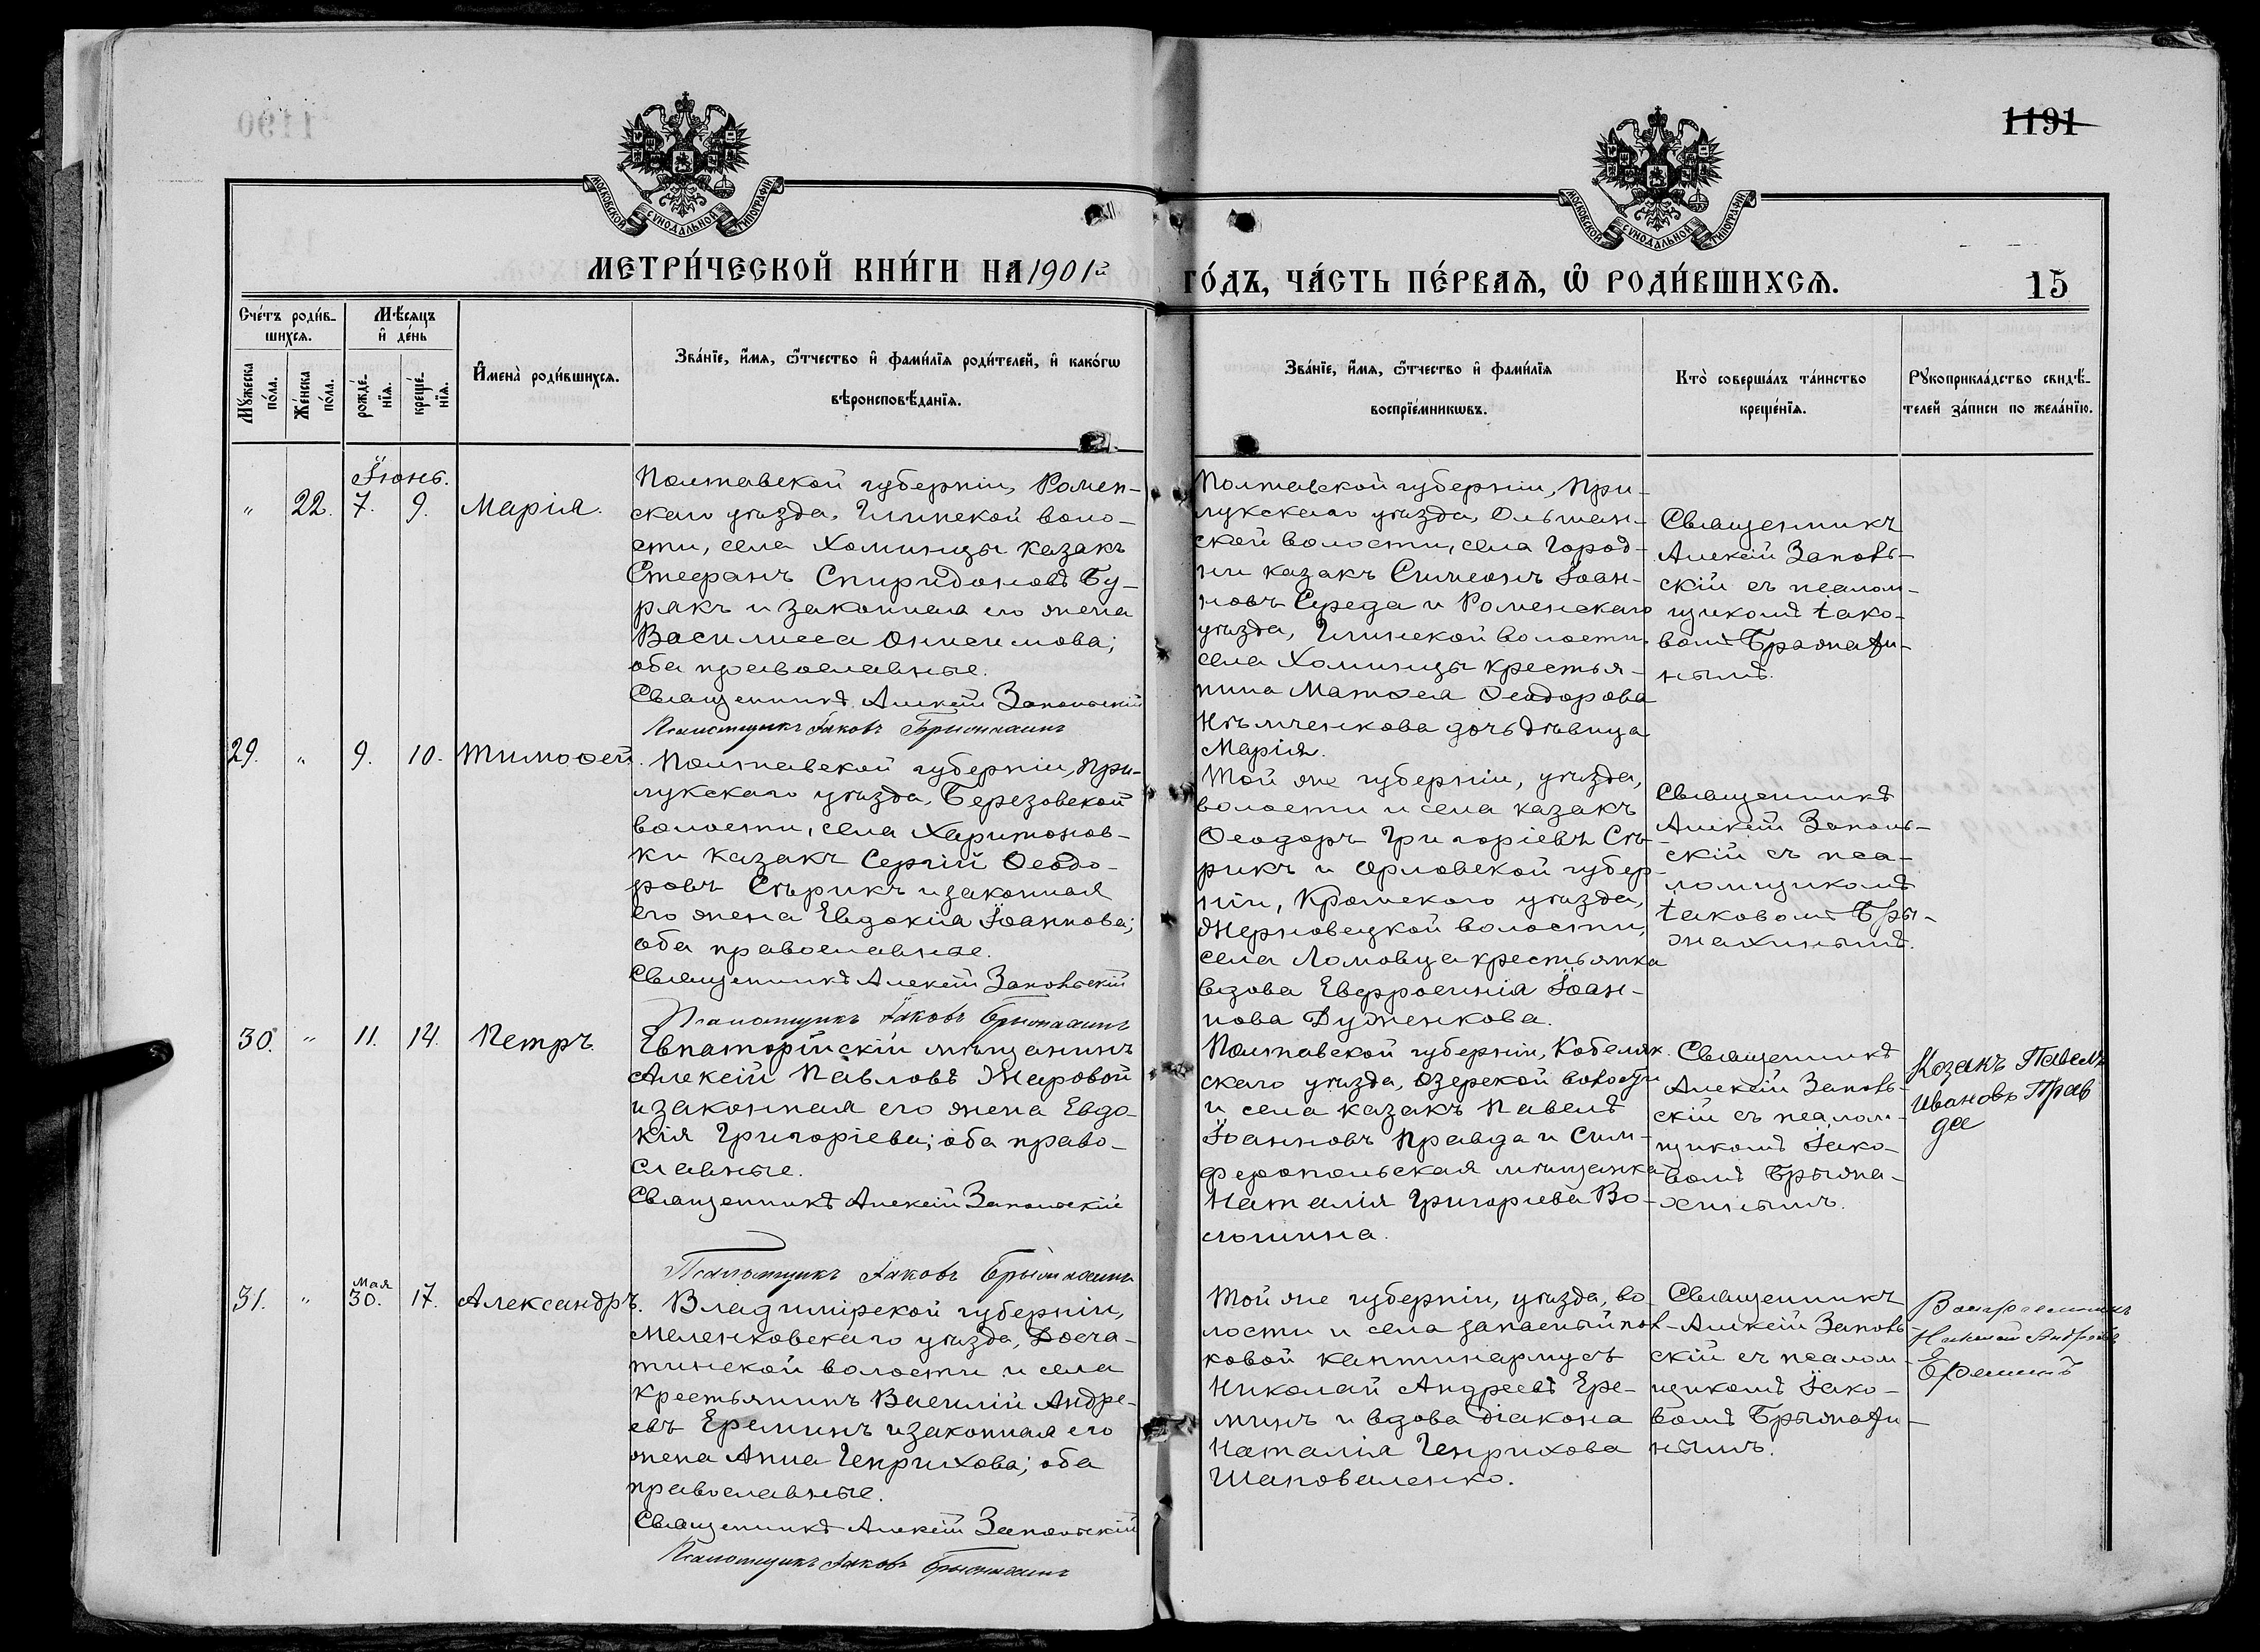 1191
МЕТРИ́ЧЕСКОЙ КНИ́ГИ НА 1901й
ГО́ДЪ, ЧА́СТЬ ПЕ́РВАѦ, Ѡ҆ РОДИ́ВШИХСѦ.
15
Сче́тъ роди́в-
шихсѧ.
Мꙋ́жеска
по́ла.
Же́нска
по́ла.
Мѣ́сѧцъ
и҆ де́нь
рожде́-
нїѧ.
креще́-
нїѧ.
И҆мена̀ роди́вшихсѧ.
Зва́нїе, и҆́мѧ, ѻ҆́тчество и҆ фами́лїѧ роди́телей, и҆ како́гѡ
вѣроисповѣ́данїѧ.
Зва́нїе, и҆́мѧ, ѻ҆́тчество и҆ фами́лїѧ
воспрїе́мникѡвъ.
Кто̀ соверша́лъ та́инство
креще́нїѧ.
Рꙋкоприкла́дство свидѣ́-
телей за́писи по жела́нїю.
Іюнь.
" 22. 7. 9. Марія.
Полтавской губерніи, Ромен-
скаго уѣзда, Глинской воло-
сти, села Хоминцы казакъ
Стефанъ Спиридоновъ Бу-
рякъ и законная его жена
Василисса Онисимова;
оба православные.
Священникъ Алексій Запольскій
Псаломщикъ Іаковъ Брыжахинъ
Полтавской губерніи, При-
лукскаго уѣзда, Ольшан-
ской волости, села Город-
ни казакъ Симеонъ Іоан-
новъ Середа и Роменскаго
уѣзда, Глинской волости,
села Хоминцы крестья-
нина Матѳея Ѳеодорова
Нѣмченкова дочь дѣвица
Марія.
Священникъ
Алексій Заполь-
скій съ псалом-
щикомъ Іако-
вомъ Брыжахи-
нымъ.
29. " 9. 10. Тимоѳей.
Полтавской губерніи, При-
лукскаго уѣзда, Березовской
волости, села Харитонов-
ки казакъ Сергій Ѳеодо-
ровъ Сѣрикъ и законная
его жена Евдокія Іоаннова;
оба православные.
Священникъ Алексій Запольскій
Псаломщикъ Іаковъ Брыжахинъ
Той же губерніи, уѣзда,
волости и села казакъ
Ѳеодоръ Григоріевъ Сѣ-
рикъ и Орловской губер-
ніи, Кромскаго уѣзда,
Жерновецкой волости,
села Ломовца крестьянка
вдова Евфросинія Іоан-
нова Дудженкова.
Священникъ
Алексій Заполь-
скій съ пса-
ломщикомъ
Іаковомъ Бры-
жахинымъ.
30. " 11. 14. Петръ.
Евпаторійскій мѣщанинъ
Алексій Павловъ Жаровой
и законная его жена Евдо-
кія Григоріева; оба право-
славные.
Священникъ Алексій Запольскій
Псаломщикъ Іаковъ Брыжахинъ
Полтавской губерніи, Кобеляк-
скаго уѣзда, Озерской волости
и села казакъ Павелъ
Іоанновъ Правда и Сим-
феропольская мѣщанка
Наталія Григоріева Во-
лошина.
Священникъ
Алексій Заполь-
скій съ псалом-
щикомъ Іако-
вомъ Брыжа-
хинымъ.
Козакъ Павелъ
Ивановъ Прав
да
31. " Мая 30. 17. Александръ.
Владимірской губерніи,
Меленковскаго уѣзда, Досча-
тинской волости и села
крестьянинъ Василій Андре-
евъ Ереминъ и законная его
жена Анна Генрихова; оба
православные.
Священникъ Алексій Запольскій
Псаломщикъ Іаковъ Брыжахинъ
Той же губерніи, уѣзда, во-
лости и села запасный пол-
ковой каптинармусъ
Николай Андреевъ Ере-
минъ и вдова діакона
Наталія Генрихова
Шаповаленко.
Священникъ
Алексій Заполь-
скій съ псалом-
щикомъ Іако-
вомъ Брыжахи-
нымъ.
Николай Андреевъ